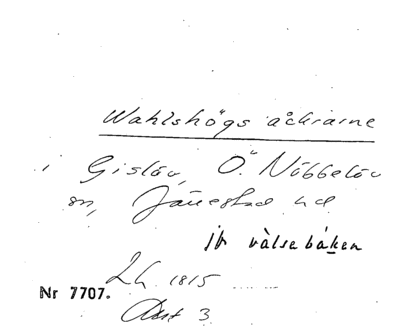 Wahlshögs åckrarne
i Gislöv, Ö. Nöbbelöv
sn, Järrestad hd
jfr välsebåken
Lh 1815
Nr 7707.
Akt 3